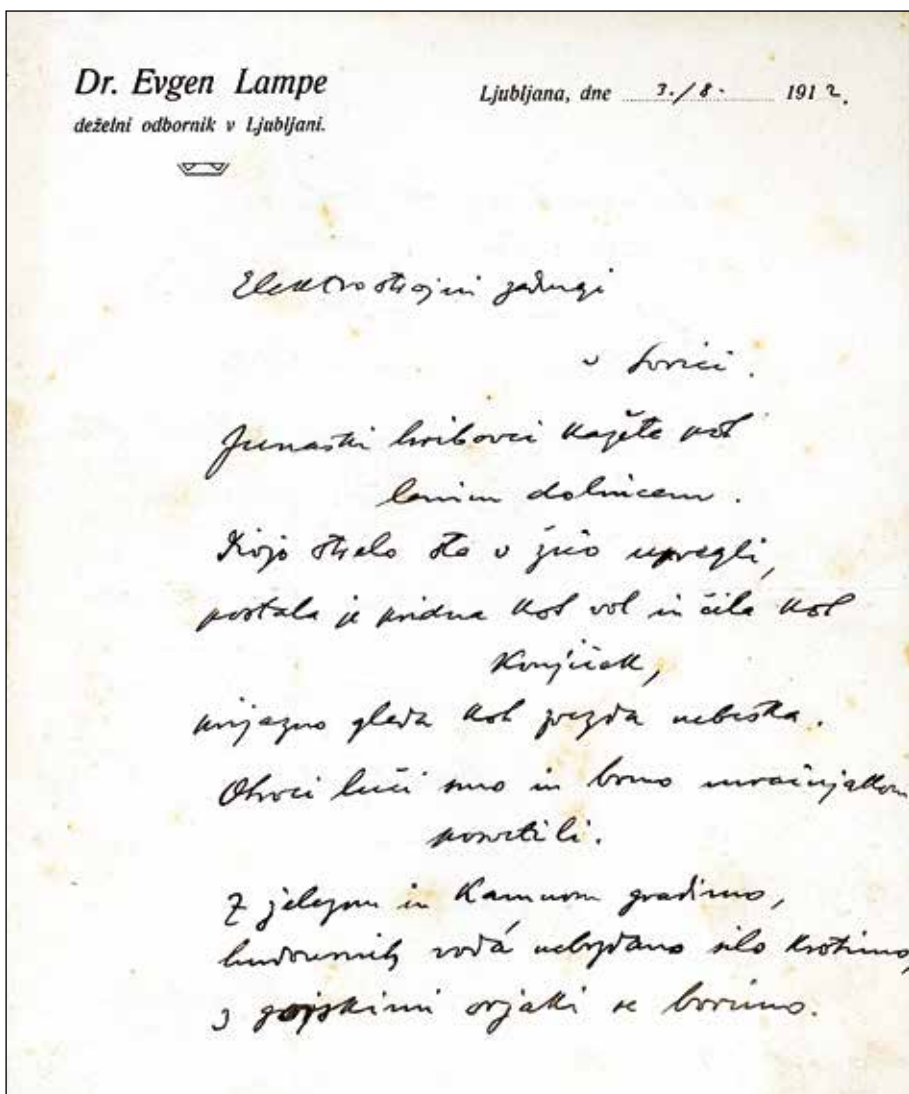 Dr. Evgen Lampe
deželni odbornik v Ljubljani.
Ljubljana, dne 3./8. 1912.
Elektrostrojni zadrugi
v Sorici.
Junaški hribovci kažete pot
lenim dolincem.
Divjo strelo ste v žico upregli,
postala je pridna kot vol in čila kot
konjiček,
prijazno gleda kot zvezda nebeška.
Otroci luči smo in bomo mračnjakom
posvetili.
Z železom in kamnom gradimo,
hudournih vodá nebrzdano silo krotimo,
z gozdskimi orjaki se borimo.